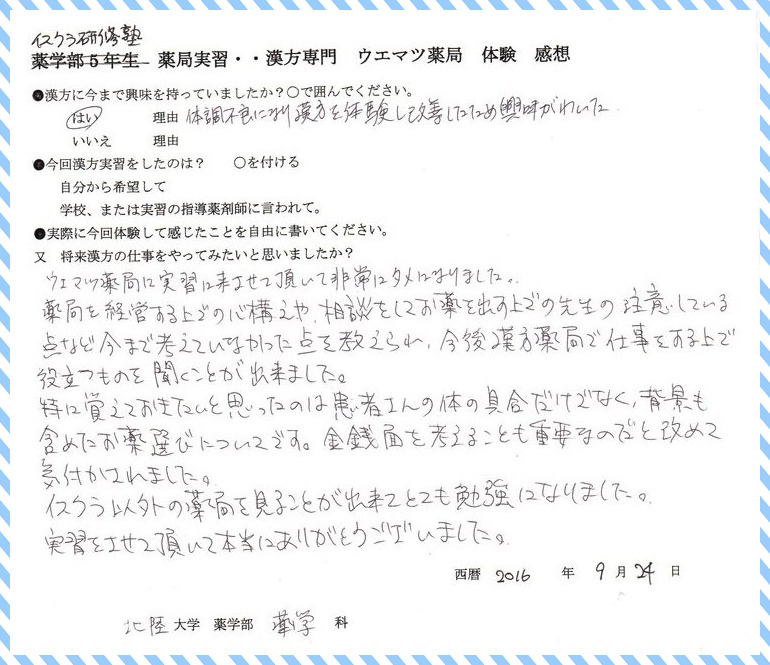 イスクラ研修塾
薬学部5年生 薬局実習・・漢方専門 ウエマツ薬局 体験 感想
●漢方に今まで興味を持っていましたか?○で囲んでください。
はい 理由 体調不良になり漢方を体験して改善したため興味がわいた
いいえ 理由
●今回漢方実習をしたのは? ○を付ける
自分から希望して
学校、または実習の指導薬剤師に言われて。
●実際に今回体験して感じたことを自由に書いてください。
又 将来漢方の仕事をやってみたいと思いましたか?
ウエマツ薬局に実習に来させて頂いて非常にタメになりました。
薬局を経営する上での心構えや、相談をしてお薬を出す上での先生の注意している
点など今まで考えていなかった点を教えられ、今後漢方薬局で仕事をする上で
役立つものを聞くことが出来ました。
特に覚えておきたいと思ったのは患者さんの体の具合だけでなく、背景も
含めたお薬選びについてです。金銭面を考えることも重要なのだと改めて
気付かされました。
イスクラ以外の薬局を見ることが出来てとても勉強になりました。
実習をさせて頂いて本当にありがとうございました。
西暦 2016 年 9月 24日
北陸大学 薬学部 薬学 科